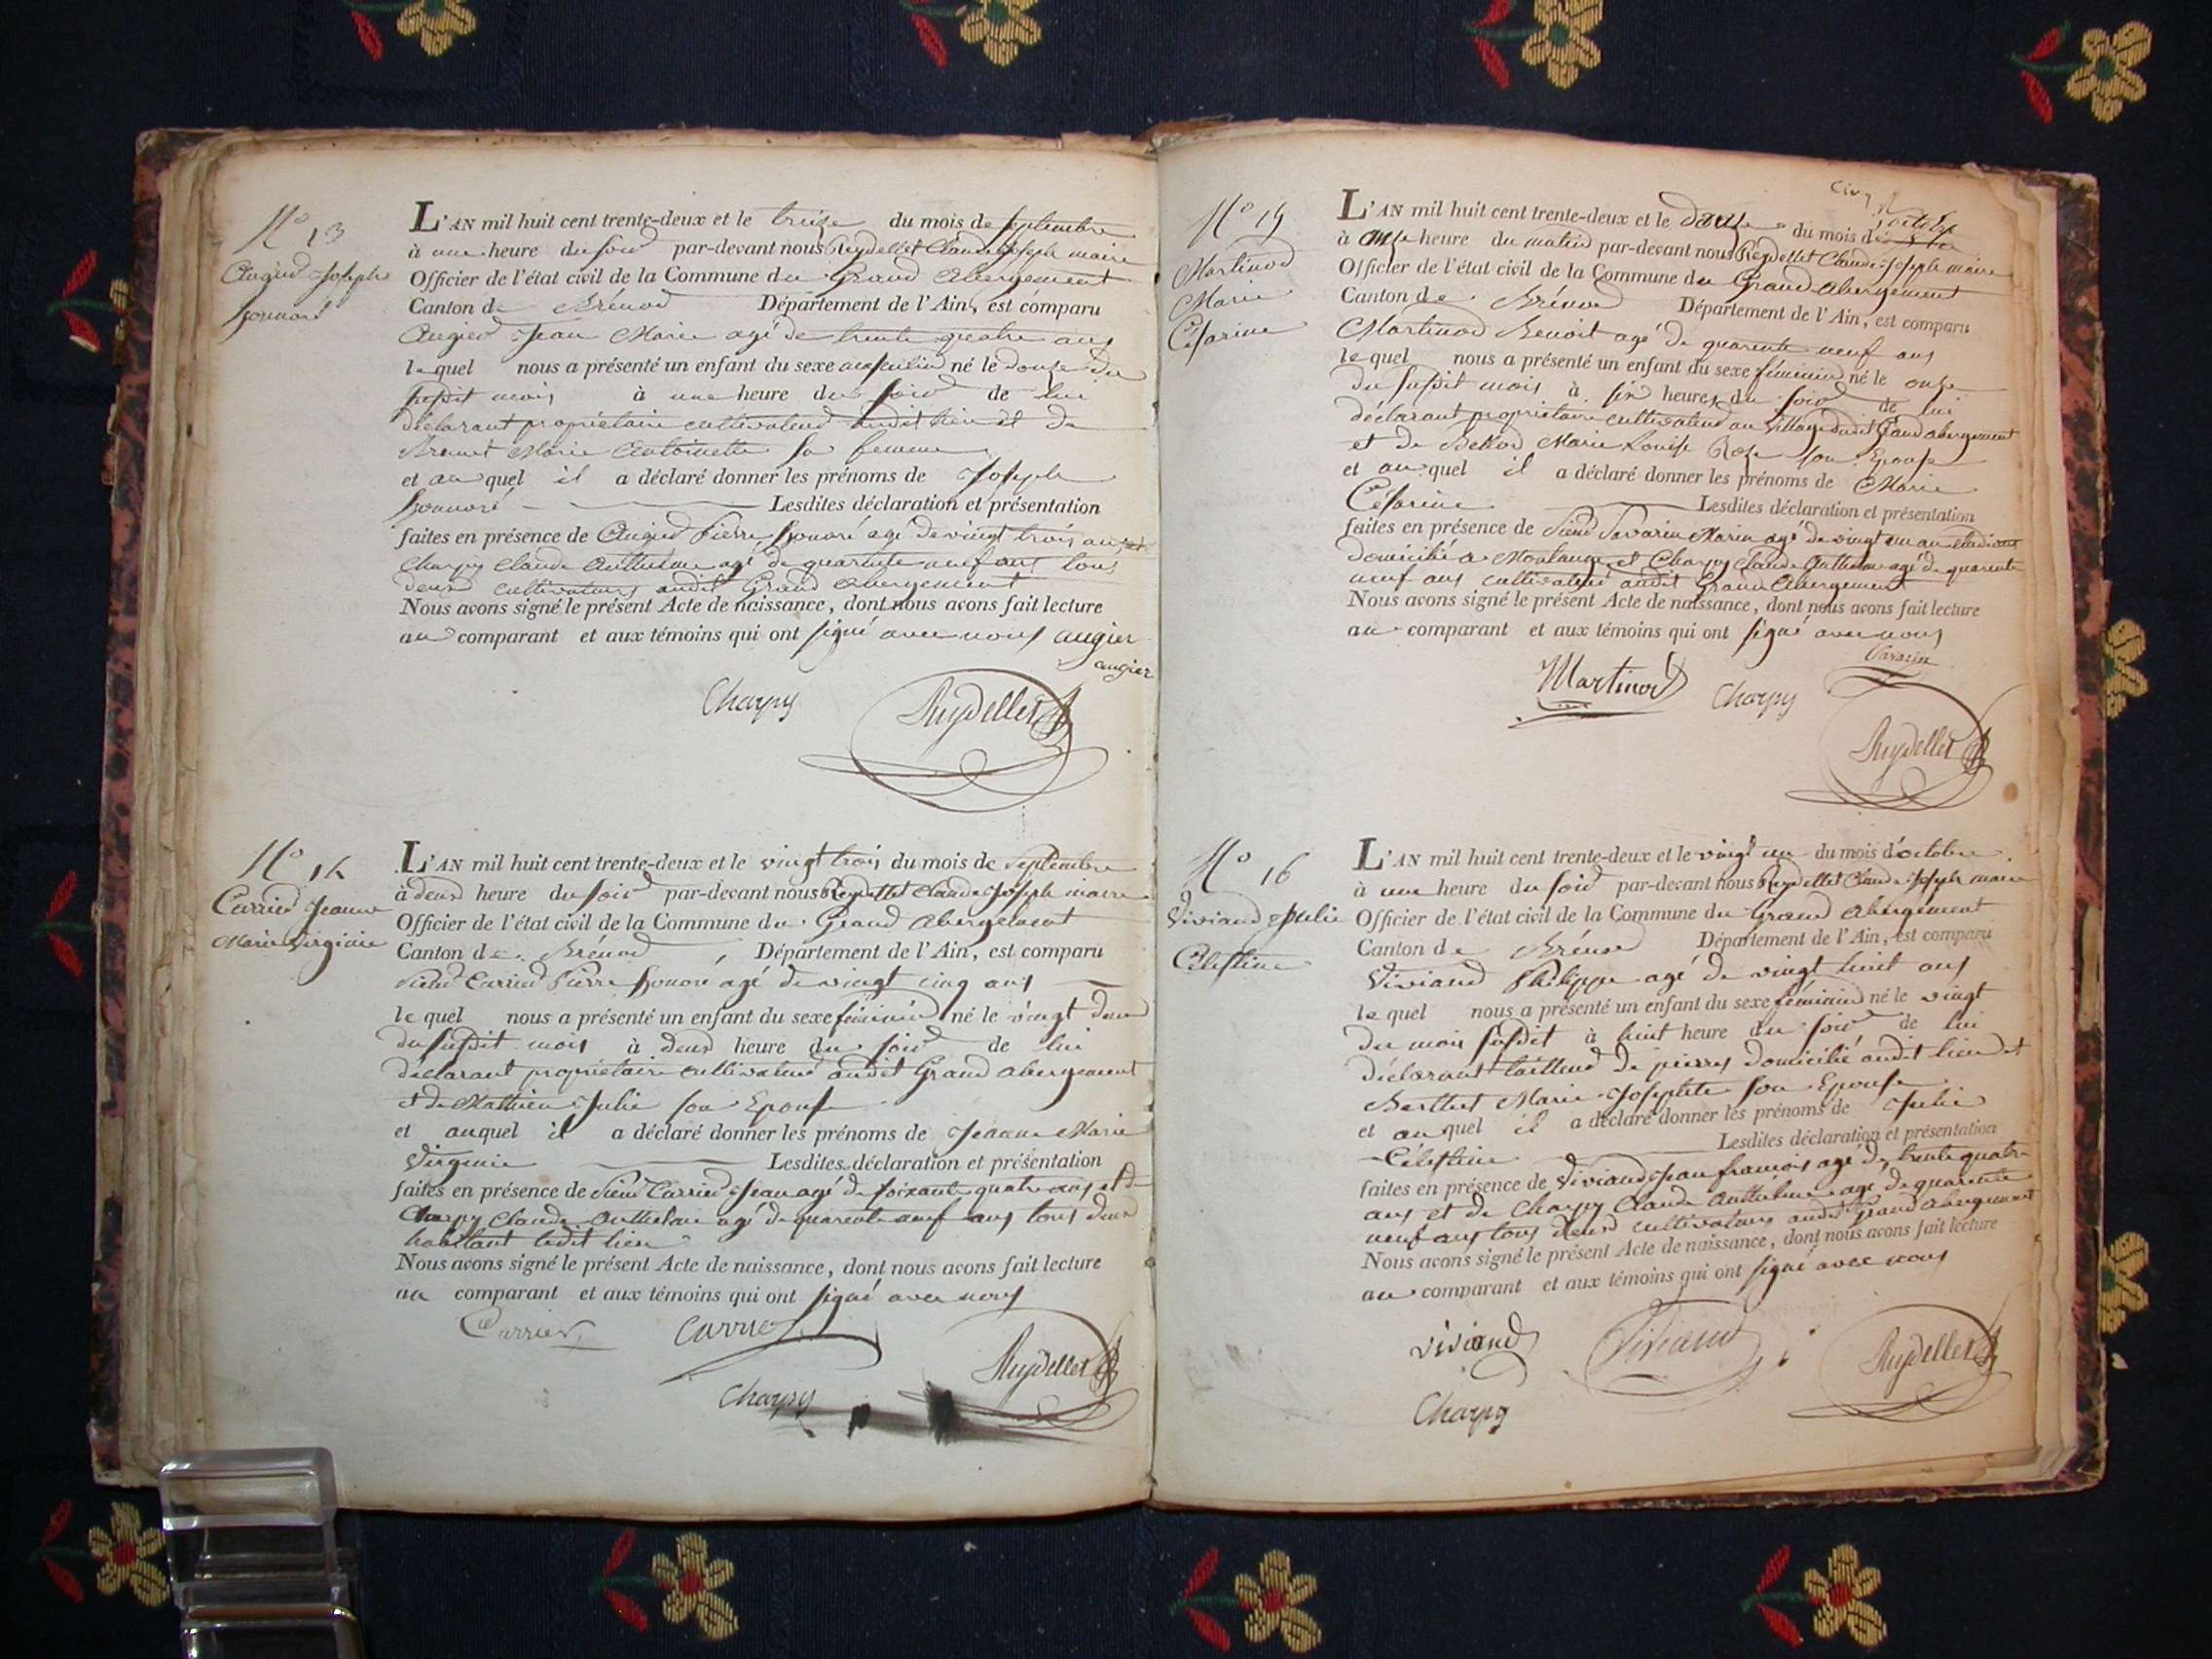 N° 13
Augier Joseph
honoré
L'AN mil huit cent trente-deux et le treize du mois de septembre
à une heure du soir par-devant nous Reydellet Claude Joseph maire
Officier de l'état civil de la Commune du Grand abergement
Canton de Brénod Département de l'Ain, est comparu
Augier Jean Marie agé de trente quatre ans
lequel nous a présenté un enfant du sexe masculin né le douze du
susdit mois à une heure du soir de lui
déclarant propriétaire cultivateur audit lieu et de
Brunet Marie Antoinette sa femme
et auquel il a déclaré donner les prénoms de Joseph
honnoré Lesdites déclaration et présentation
faites en présence de Augier Pierre honoré agé de vingt trois ans et
Charpy Claude Anthelme agé de quarante neuf ans tous
deux cultivateurs audit Grand abergement
Nous avons signé le présent Acte de naissance, dont nous avons fait lecture
au comparant et aux témoins qui ont signé avec nous augier
augier
Charpy Reydellet
N° 14
Carrier Jeanne
Marie Virginie
L'AN mil huit cent trente-deux et le vingt trois du mois de Septembre
à deux heure du soir par-devant nous Reydellet Claude Joseph maire
Officier de l'état civil de la Commune du Grand abergement
Canton de Brénod Département de l'Ain, est comparu
Sieur Carrier Pierre honoré agé de vingt cinq ans
lequel nous a présenté un enfant du sexe féminin né le vingt deux
du susdit mois à deux heure du soir de lui
déclarant propriétaire cultivateur audit Grand abergement
et de Mathieu Julie son Epouse
et auquel il a déclaré donner les prénoms de Jeanne Marie
Virginie Lesdites déclaration et présentation
faites en présence de Sieur Carrier Jean agé de soixante quatre ans et de
Charpy Claude Anthelme agé de quarante neuf ans tous deux
habitant ledit lieu
Nous avons signé le présent Acte de naissance, dont nous avons fait lecture
au comparant et aux témoins qui ont signé avec nous
Carrier Carrier
Reydellet
Charpy
N° 15
Martinod
Marie
Césarine
L'AN mil huit cent trente-deux et le douze du mois d'octobre
à onze heure du matin par-devant nous Reydellet Claude Joseph maire
Officier de l'état civil de la Commune du Grand abergement
Canton de Brénod Département de l'Ain, est comparu
Martinod Benoit agé de quarante neuf ans
lequel nous a présenté un enfant du sexe féminin né le onze
du susdit mois à six heures du soir de lui
déclarant propriétaire cultivateur au village dudit Grand abergement
et de Marie Louise Rose son Epouse
et auquel il a déclaré donner les prénoms de Marie
Césarine Lesdites déclaration et présentation
faites en présence de Sieur Savarin Marin agé de vingt un an étudiant
domicilié à et Charpy Claude Anthelme agé de quarante
neuf ans cultivateur audit Grand Abergement
Nous avons signé le présent Acte de naissance, dont nous avons fait lecture
au comparant et aux témoins qui ont signé avec nous
Savarin
Martinod Charpy
Reydellet
N° 16
Viviand Julie
Célestine
L'AN mil huit cent trente-deux et le vingt un du mois d'octobre
à une heure du soir par-devant nous Reydellet Claude Joseph maire
Officier de l'état civil de la Commune du Grand Abergement
Canton de Brénod Département de l'Ain, est comparu
Viviand Philippe agé de vingt huit ans
lequel nous a présenté un enfant du sexe féminin né le vingt
du mois susdit à huit heure du soir de lui
déclarant tailleur de pierres domicilié audit lieu et
Berthet Marie Josephte son Epouse
et auquel il a déclaré donner les prénoms de Julie
Célestine Lesdites déclaration et présentation
faites en présence de Viviand Jean françois agé de trente quatre
ans et de Charpy Claude Anthelme agé de quarante
neuf ans tous deux cultivateurs audit Grand abergement
Nous avons signé le présent Acte de naissance, dont nous avons fait lecture
au comparant et aux témoins qui ont signé avec nous
viviand Viviand Reydellet
Charpy